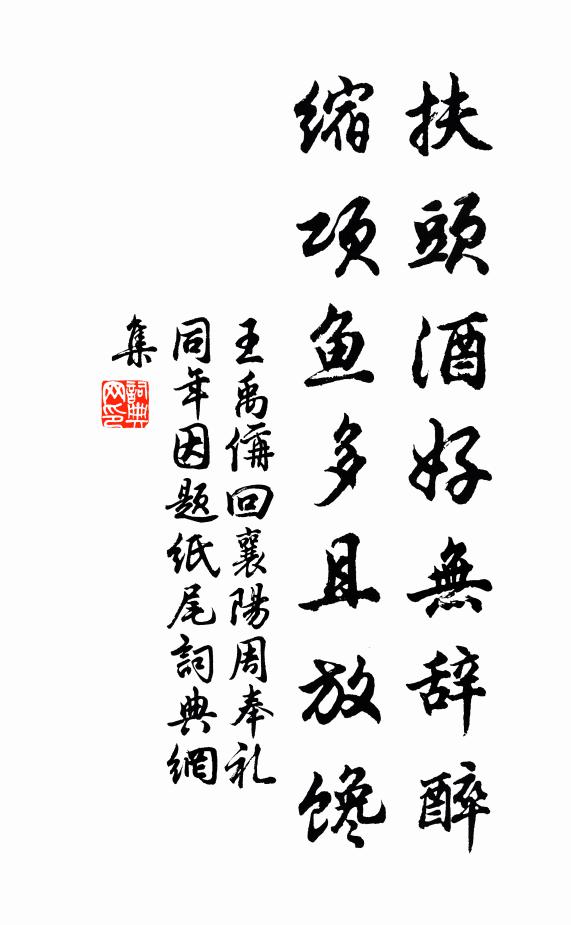 扶頭酒好無辞醉
缩项鱼多且放馋
王禹偁回襄陽周奉礼
同年因题纸尾詞典網
集
詞典
网印